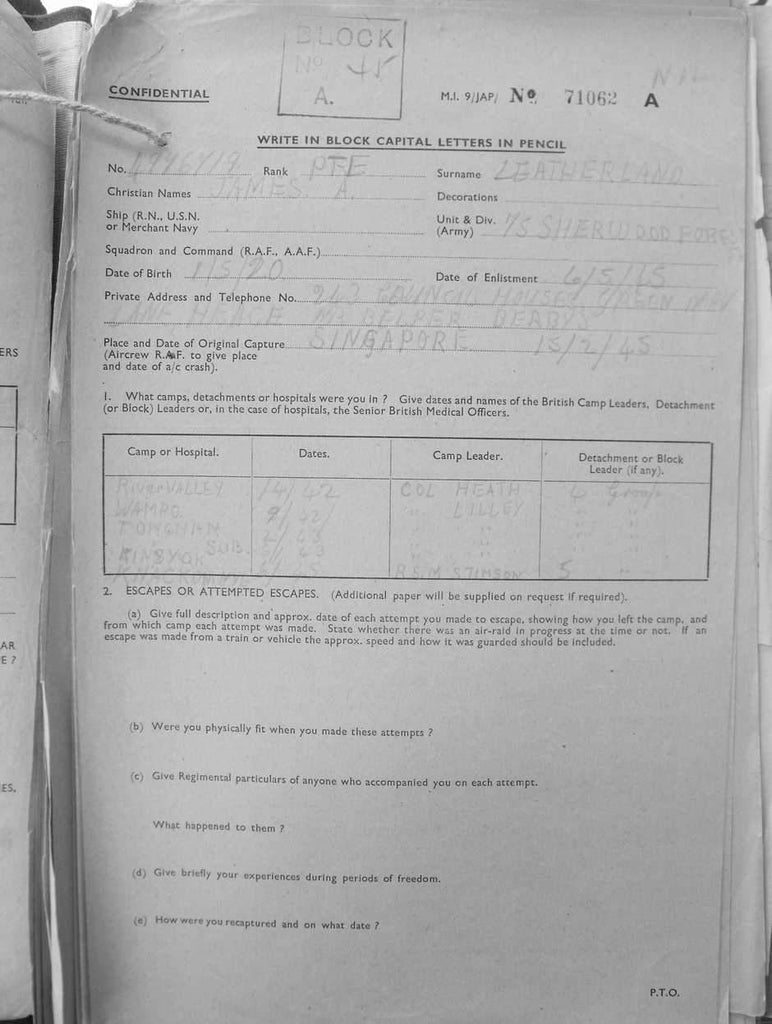 BLOCK
No 45
A.
CONFIDENTIAL
M.I. 9/JAP/ No. 71062 A
WRITE IN BLOCK CAPITAL LETTERS IN PENCIL
No. Rank PTE Surname LEATHERLAND
Christian Names JAMES A. Decorations
Ship (R.N., U.S.N. or Merchant Navy
Unit & Div. (Army) 1/5 SHERWOOD FORE
Squadron and Command (R.A.F., A.A.F.)
Date of Birth 1/5/20 Date of Enlistment
Private Address and Telephone No. COUNCIL HOUSES GREEN
BELPER DERBYS
Place and Date of Original Capture SINGAPORE 15/2/45
(Aircrew R.A.F. to give place
and date of a/c crash).
1. What camps, detachments or hospitals were you in ? Give dates and names of the British Camp Leaders, Detachment
(or Block) Leaders or, in the case of hospitals, the Senior British Medical Officers.
Camp or Hospital. Dates. Camp Leader. Detachment or Block Leader (if any).
RIVER VALLEY /4/42 COL HEATH 4 Group
WAMPO 9/42 " LILLEY " "
TONCHAN 2/43 " " " "
KINSYOK SUB. /43 " " "
R.S.M STIMSON 5
2. ESCAPES OR ATTEMPTED ESCAPES. (Additional paper will be supplied on request if required).
(a) Give full description and approx. date of each attempt you made to escape, showing how you left the camp, and
from which camp each attempt was made. State whether there was an air-raid in progress at the time or not. If an
escape was made from a train or vehicle the approx. speed and how it was guarded should be included.
(b) Were you physically fit when you made these attempts ?
(c) Give Regimental particulars of anyone who accompanied you on each attempt.
What happened to them ?
(d) Give briefly your experiences during periods of freedom.
(e) How were you recaptured and on what date ?
P.T.O.
ERS
AR
E ?
ES.